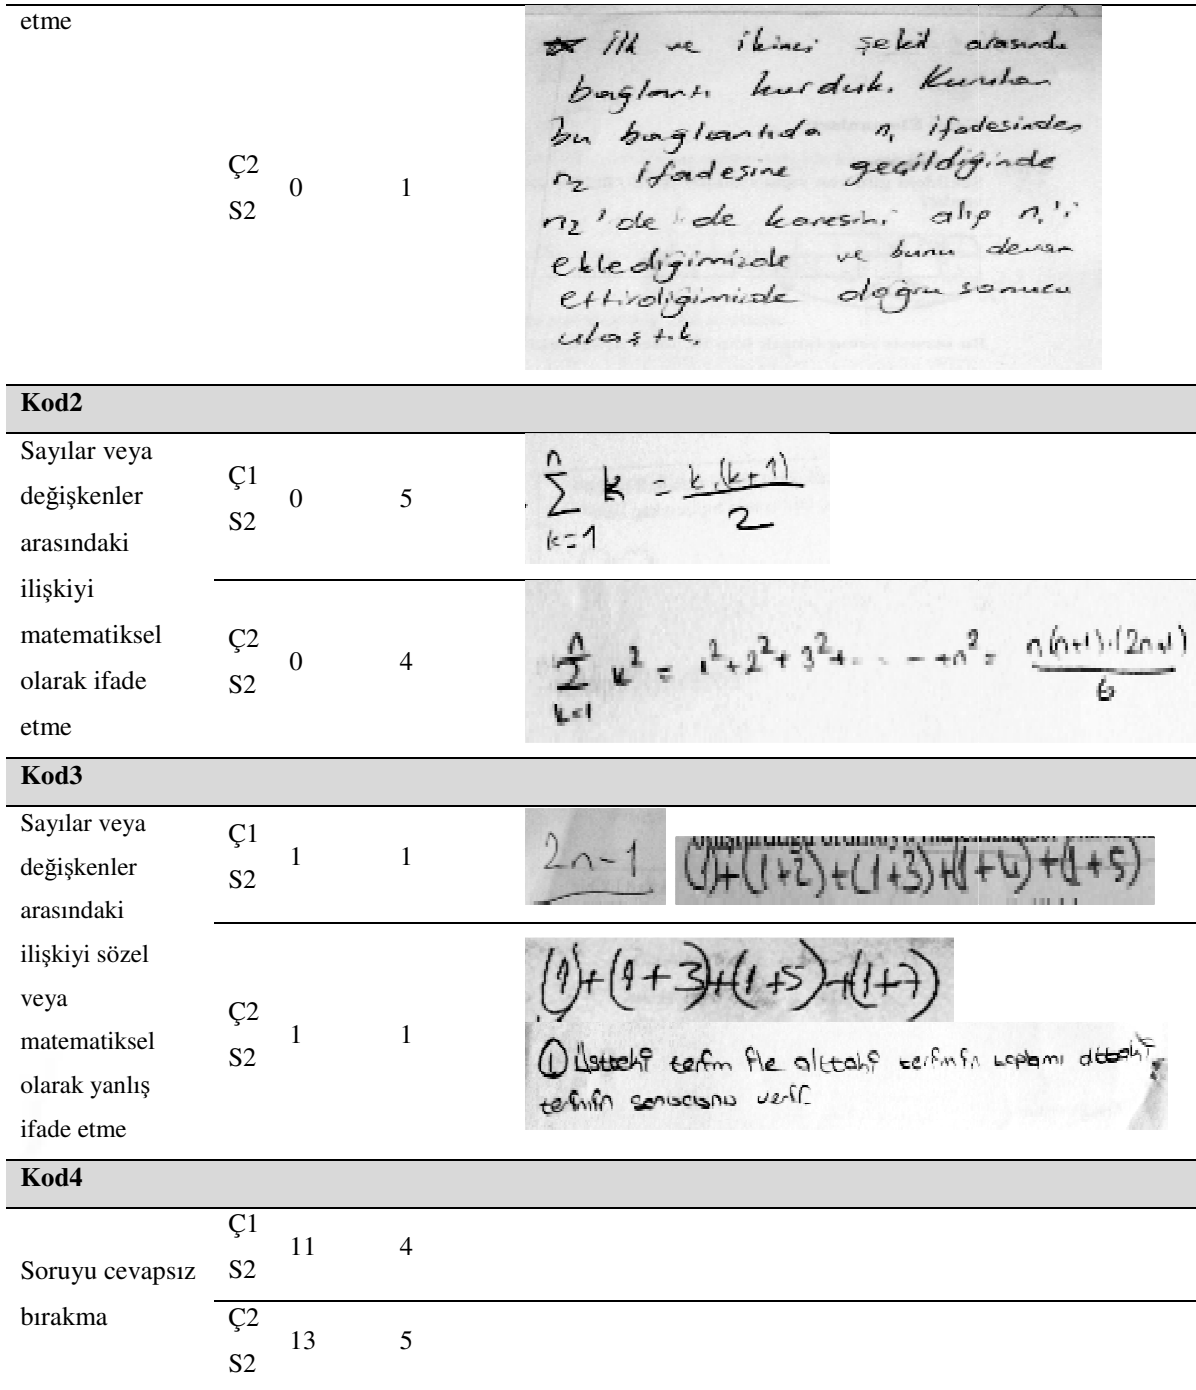 etme
Ç2
S2
0
1
İlk ve ikinci şekil arasında
bağlantı kurduk. Kurulan
bu bağlantıda n₁ ifadesinden
n₂ ifadesine geçildiğinde
n₂'de de karesini alıp n₁'i
eklediğimizde ve bunu devam
ettirdiğimizde doğru sonuca
ulaştık.
Kod2
Sayılar veya
değişkenler
arasındaki
ilişkiyi
matematiksel
olarak ifade
etme
Ç1
S2
0
5
n ∑ k=1 k = k.(k+1) / 2
Ç2
S2
0
4
n ∑ k=1 k² = 1²+2²+3²+. . - - +n² = n(n+1).(2n+1) / 6
Kod3
Sayılar veya
değişkenler
arasındaki
ilişkiyi sözel
veya
matematiksel
olarak yanlış
ifade etme
Ç1
S2
1
1
2n-1
(1)+(1+2)+(1+3)+(1+4)+(1+5)
Ç2
S2
1
1
(1)+(1+3)+(1+5)+(1+7)
① Üstteki terim ile alttaki terimin toplamı alttaki
terimin sonucunu verir.
Kod4
Soruyu cevapsız
bırakma
Ç1
S2
11
4
Ç2
S2
13
5